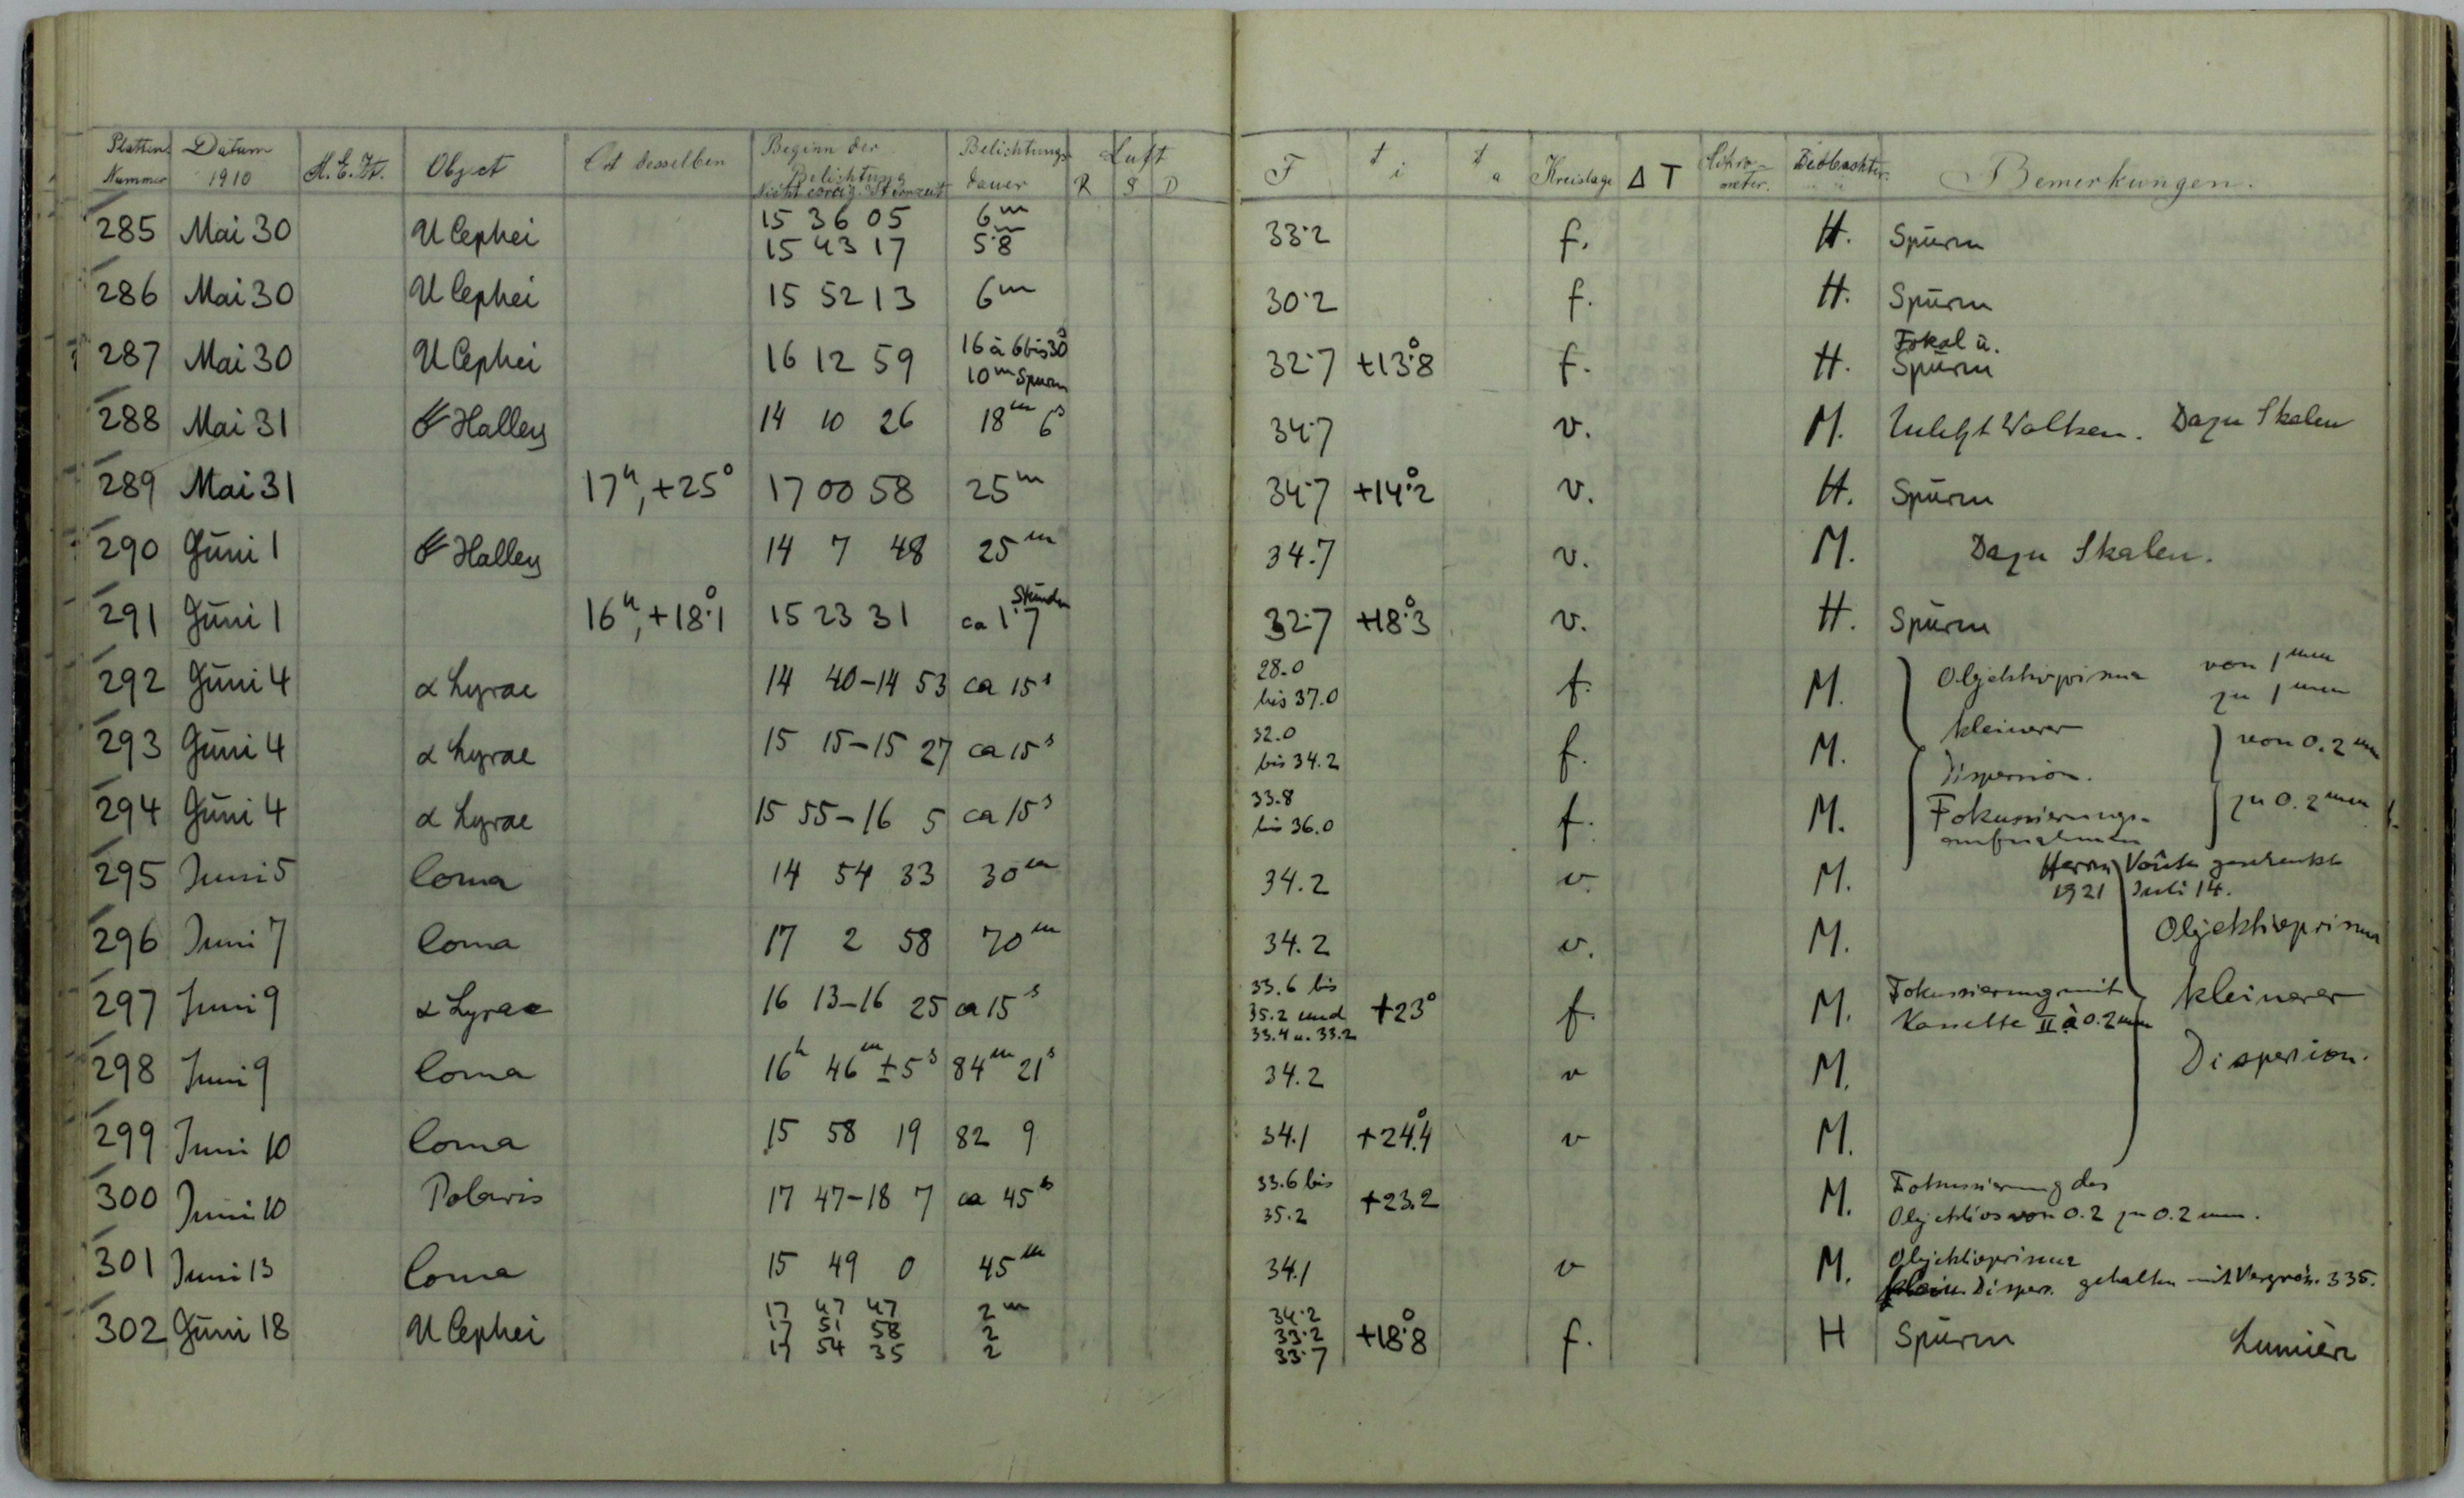 Platten Nummer Datum 1910 M.E.Zt. Object Ort desselben Beginn der Belichtung Nicht corrig. Sternzeit Belichtungs dauer Luft R S D F t i t a Kreislage ΔT Beobachter Bemerkungen.
285 Mai 30 U Cephei 15 36 05 6m 33.2 f. H. Spuren
15 43 17 5.8m
286 Mai 30 U Cephei 15 52 13 6m 30.2 f. H. Spuren
287 Mai 30 U Cephei 16 12 59 16 à 6 bis 30 32.7 +13.°8 f. H. Fokal u.
10m Spuren Spuren
288 Mai 31 ☄ Halley 14 10 26 18m 6s 34.7 v. M. Zuletzt Wolken. Dazu Skalen
289 Mai 31 17h, +25° 17 00 58 25m 34.7 +14.°2 v. H. Spuren
290 Juni 1 ☄ Halley 14 7 48 25m 34.7 v. M. Dazu Skalen.
291 Juni 1 16h, +18.°1 15 23 31 ca 1.7 Stunden 32.7 +18.°3 v. H. Spuren
292 Juni 4 α Lyrae 14 40–14 53 ca 15s 28.0 bis 37.0 f. M. Objektivprisma von 1mm zu 1mm
293 Juni 4 α Lyrae 15 15–15 27 ca 15s 32.0 bis 34.2 f. M. kleinerer Dispersion. von 0.2mm
294 Juni 4 α Lyrae 15 55–16 5 ca 15s 33.8 bis 36.0 f. M. Fokussierungs-aufnahmen zu 0.2mm
295 Juni 5 Coma 14 54 33 30m 34.2 v. M. Herrn Voûte geschenkt
1921 Juli 14.
296 Juni 7 Coma 17 2 58 70m 34.2 v. M. Objektivprisma
297 Juni 9 α Lyrae 16 13–16 25 ca 15s 33.6 bis 35.2 und 33.4 u. 33.2 +23° f. M. Fokussierung mit Kassette II à 0.2mm kleinerer
298 Juni 9 Coma 16h 46m ± 5s 84m 21s 34.2 v M. Dispersion.
299 Juni 10 Coma 15 58 19 82 9 34.1 +24.°4 v M.
300 Juni 10 Polaris 17 47–18 7 ca 45s 33.6 bis 35.2 +23.2 M. Fokussierung des
Objektivs von 0.2 zu 0.2 mm.
301 Juni 13 Coma 15 49 0 45m 34.1 v M. Objektivprisma
klein. Dispers. gehalten mit Vergröss. 335.
302 Juni 18 U Cephei 17 47 47 2m 34.2 +18.°8 f. H Spuren Lumière
17 51 58 2 33.2
17 54 35 2 33.7